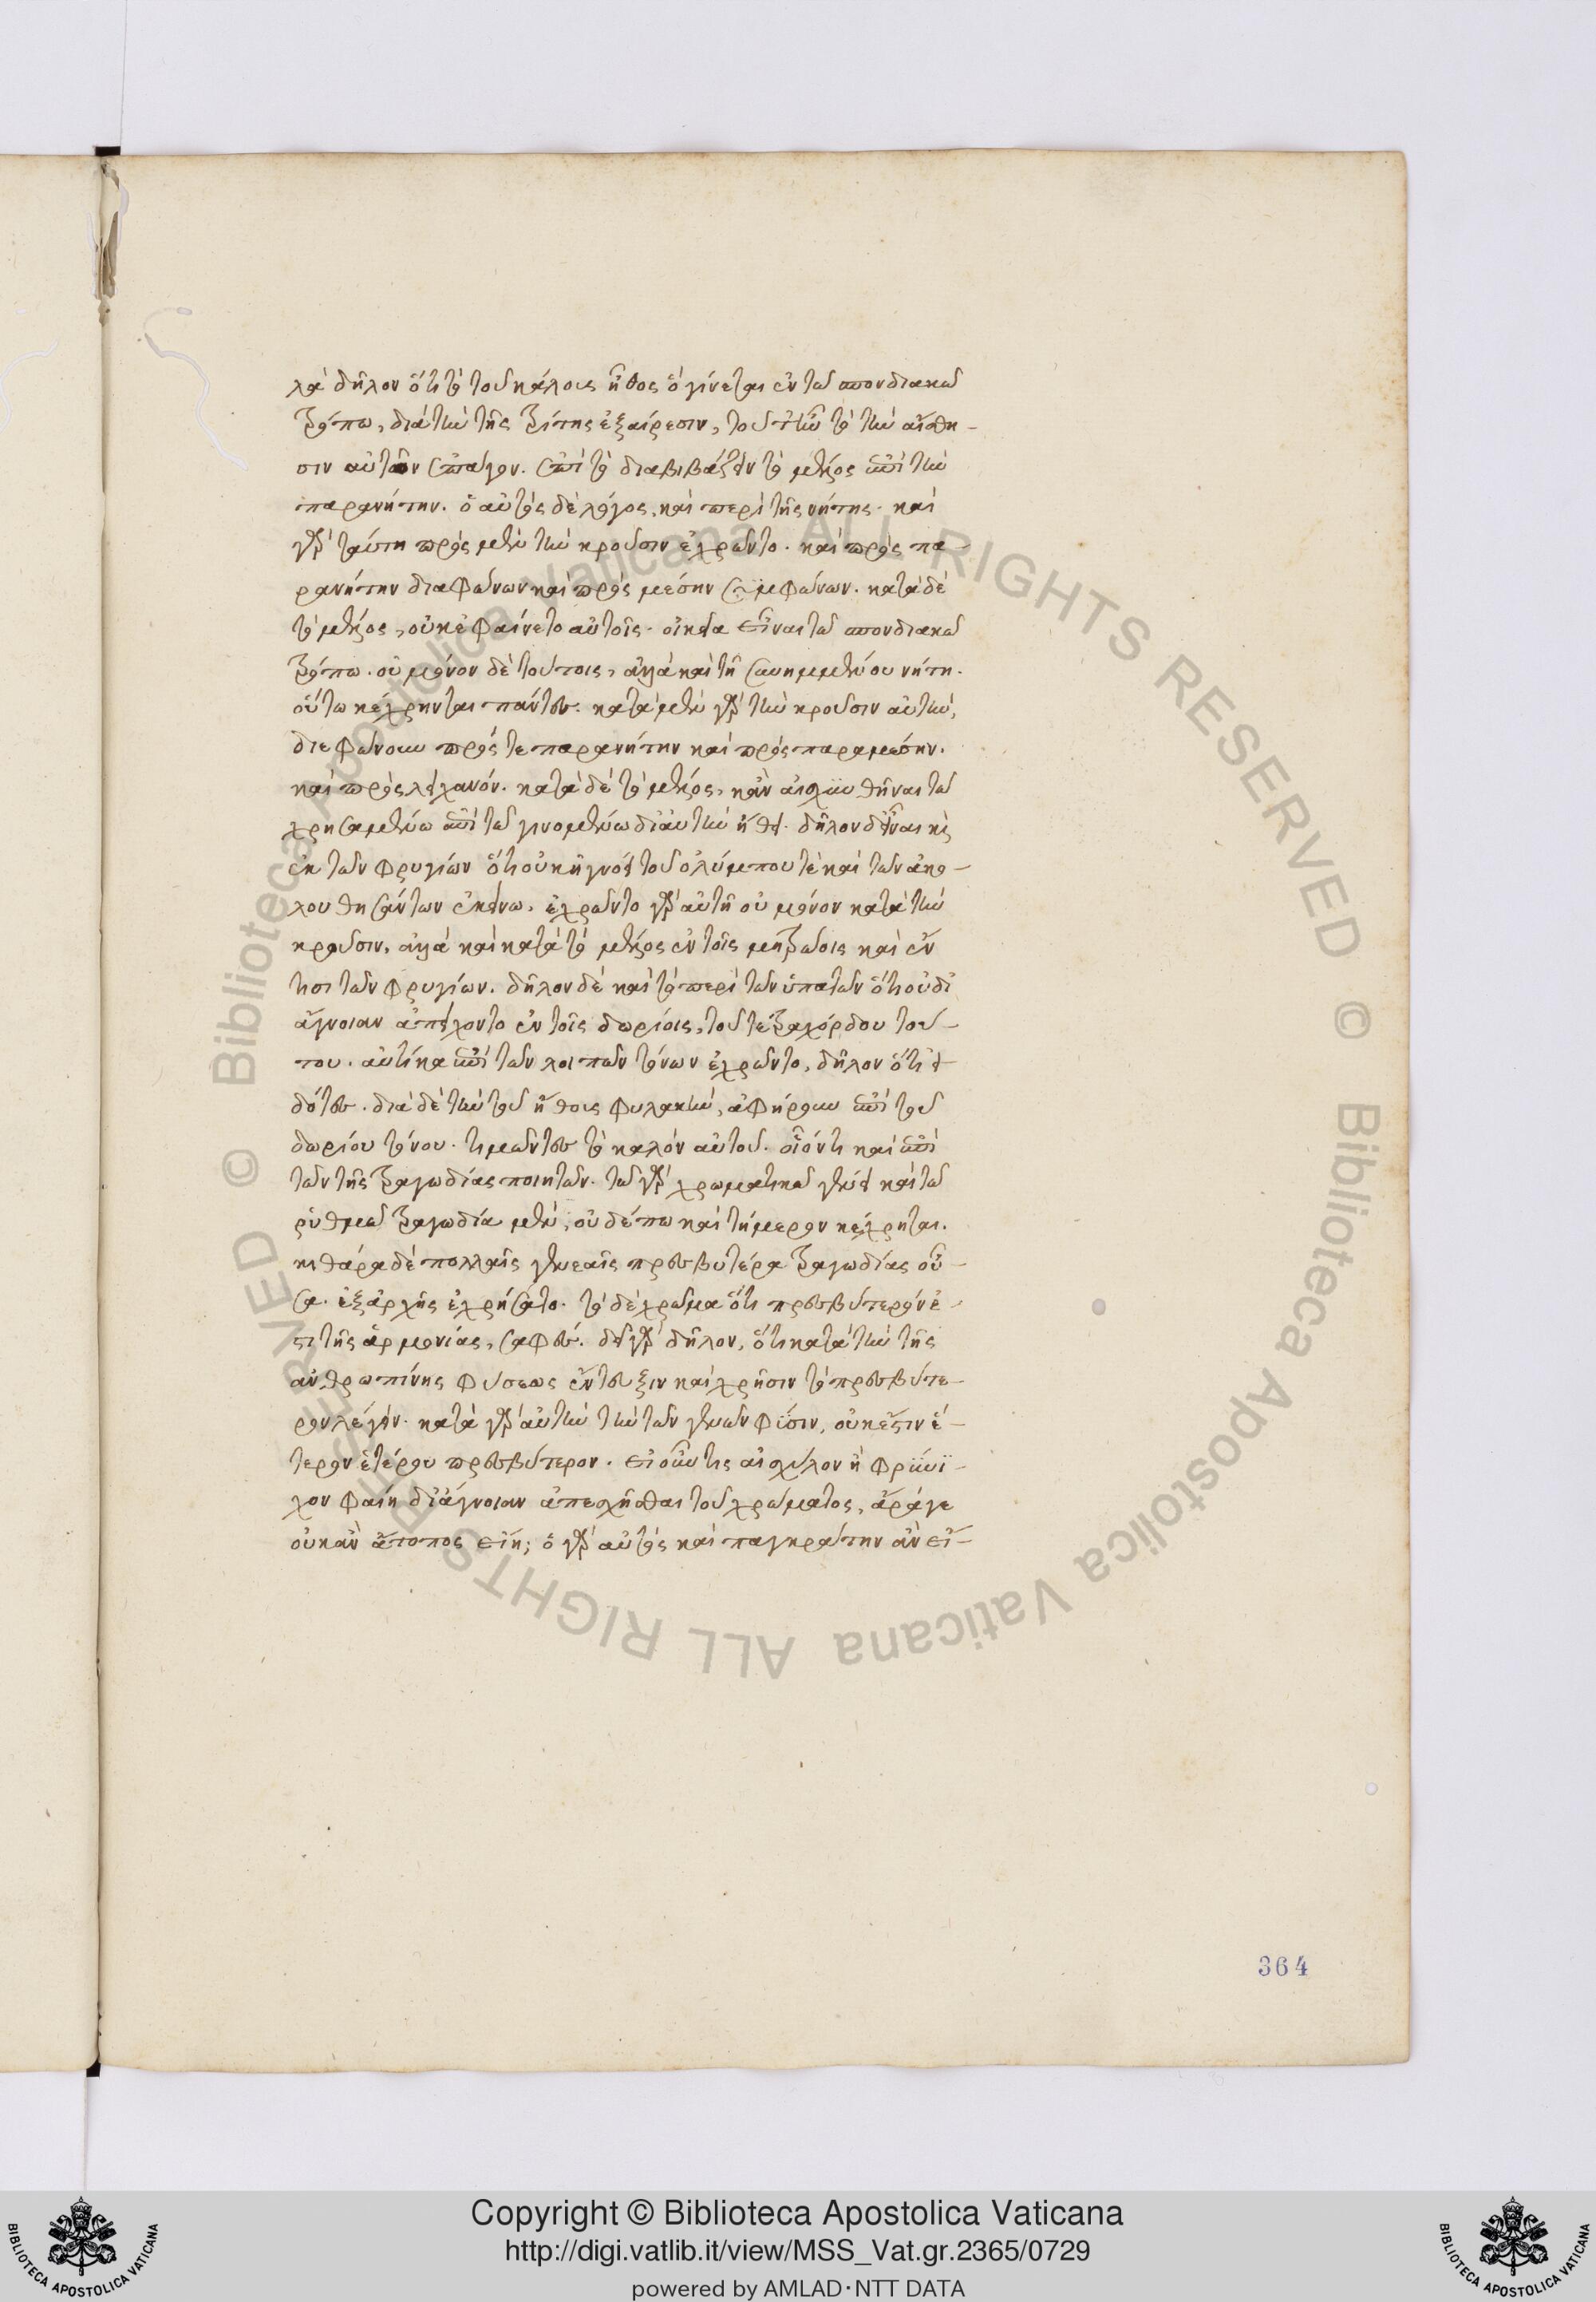 λὰ δῆλον ὅτι τὸ τοῦ κάλους ἦθος ὃ γίνεται ἐν τῶ σπονδιακῶ
τρόπω, διὰ τὴν τῆς τρίτης ἐξαίρεσιν, τοῦτ ἦν τὸ τὴν αἴσθη-
σιν αὐτῶν ἐπάγον. ἐπὶ τὸ διαβιβάζειν τὸ μέλος ἐπὶ τὴν
παρανήτην. ὁ αὐτὸς δὲ λόγος, καὶ περὶ τῆς νήτης. καὶ
γὰρ ταύτη πρὸς μὲν τὴν κροῦσιν ἐχρῶντο. καὶ πρὸς πα-
ρανήτην διαφώνων καὶ πρὸς μέσην συμφώνων. κατὰ δὲ
τὸ μέλος, οὐκ ἐφαίνετο αὐτοῖς. οἰκεία εἶναι τῶ σπονδιακῶ
τρόπω. οὐ μόνον δὲ τούτοις, ἀλλὰ καὶ τῆ συνημμένου νήτη.
οὕτω κέχρηνται πάντες. κατὰ μὲν γὰρ τὴν κροῦσιν αὐτὴν,
διεφώνουν πρός τε παρανήτην καὶ πρὸς παραμέσην.
καὶ πρὸς λειχανόν. κατὰ δὲ τὸ μέλος, κἂν αἰσχυνθῆναι τῶ
χρησαμένω ἐπὶ τῶ γινομένω δι αὐτὴν ἤθει. δῆλον δ εἶναι κὶς
ἐκ τῶν φρυγίων ὅτι οὐκ ἠγνόει τοῦ ὀλύμπου τὲ καὶ τῶν ἀκο-
λουθησάντων ἐκείνω. ἐχρῶντο γὰρ αὐτῆ οὐ μόνον κατὰ τὴν
κροῦσιν, ἀλλὰ καὶ κατὰ τὸ μέλος ἐν τοῖς μητρώοις καὶ ἔν
τισι τῶν φρυγίων. δῆλον δὲ καὶ τὸ περὶ τῶν ὑπατῶν ὅτι οὐ δι
ἄγνοιαν ἀπείχοντο ἐν τοῖς δωρίοις, τοῦ τετραχόρδου τού-
του. αὐτίκα ἐπὶ τῶν λοιπῶν τόνων ἐχρῶντο, δῆλον ὅτι εἰ
δότες. διὰ δὲ τὴν τοῦ ἤθους φυλακὴν, ἀφήρουν ἐπὶ τοῦ
δωρίου τόνου. τιμῶντες τὸ καλὸν αὐτοῦ. οἷόν τι καὶ ἐπὶ
τῶν τῆς τραγωδίας ποιητῶν. τῶ γὰρ χρωματικῶ γένει καὶ τῶ
ῥυθμῶ τραγωδία μὲν, οὐδέπω καὶ τήμερον κέχρηται.
κιθάρα δὲ πολλαῖς γενεαῖς πρεσβυτέρα τραγωδίας οὖ-
σα. ἐξ ἀρχῆς ἐχρήσατο. τὸ δὲ χρῶμα ὅτι πρεσβύτερόν ἐ-
στι τῆς ἁρμονίας, σαφές. δεῖ γὰρ δῆλον, ὅτι κατὰ τὴν τῆς
ἀνθρωπίνης φύσεως ἔντευξιν καὶ χρῆσιν τὸ πρεσβύτε-
ρον λέγειν. κατὰ γὰρ αὐτὴν τὴν τῶν γενῶν φύσιν, οὐκ ἔστιν ἕ-
τερον ἑτέρου πρεσβύτερον. εἰ οὖν τις αἰσχύλον ἢ φρύνι-
χον φαίη δι ἄγνοιαν ἀπεσχῆσθαι τοῦ χρώματος, ἆρά γε
οὐκ ἂν ἄτοπος εἴη; ὁ γὰρ αὐτὸς καὶ παγκράτην ἂν εἴ-
364
Copyright © Biblioteca Apostolica Vaticana
http://digi.vatlib.it/view/MSS_Vat.gr.2365/0729
powered by AMLAD·NTT DATA